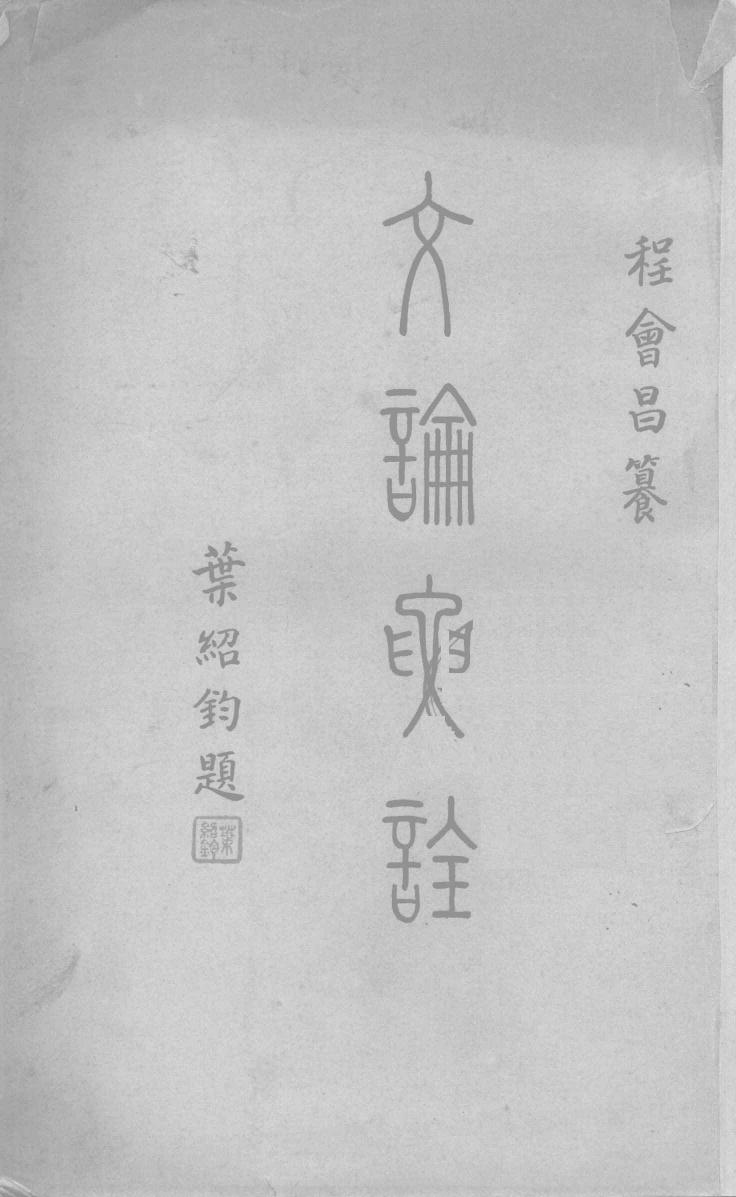 程會昌纂
文論要詮
葉紹鈞題
葉紹鈞